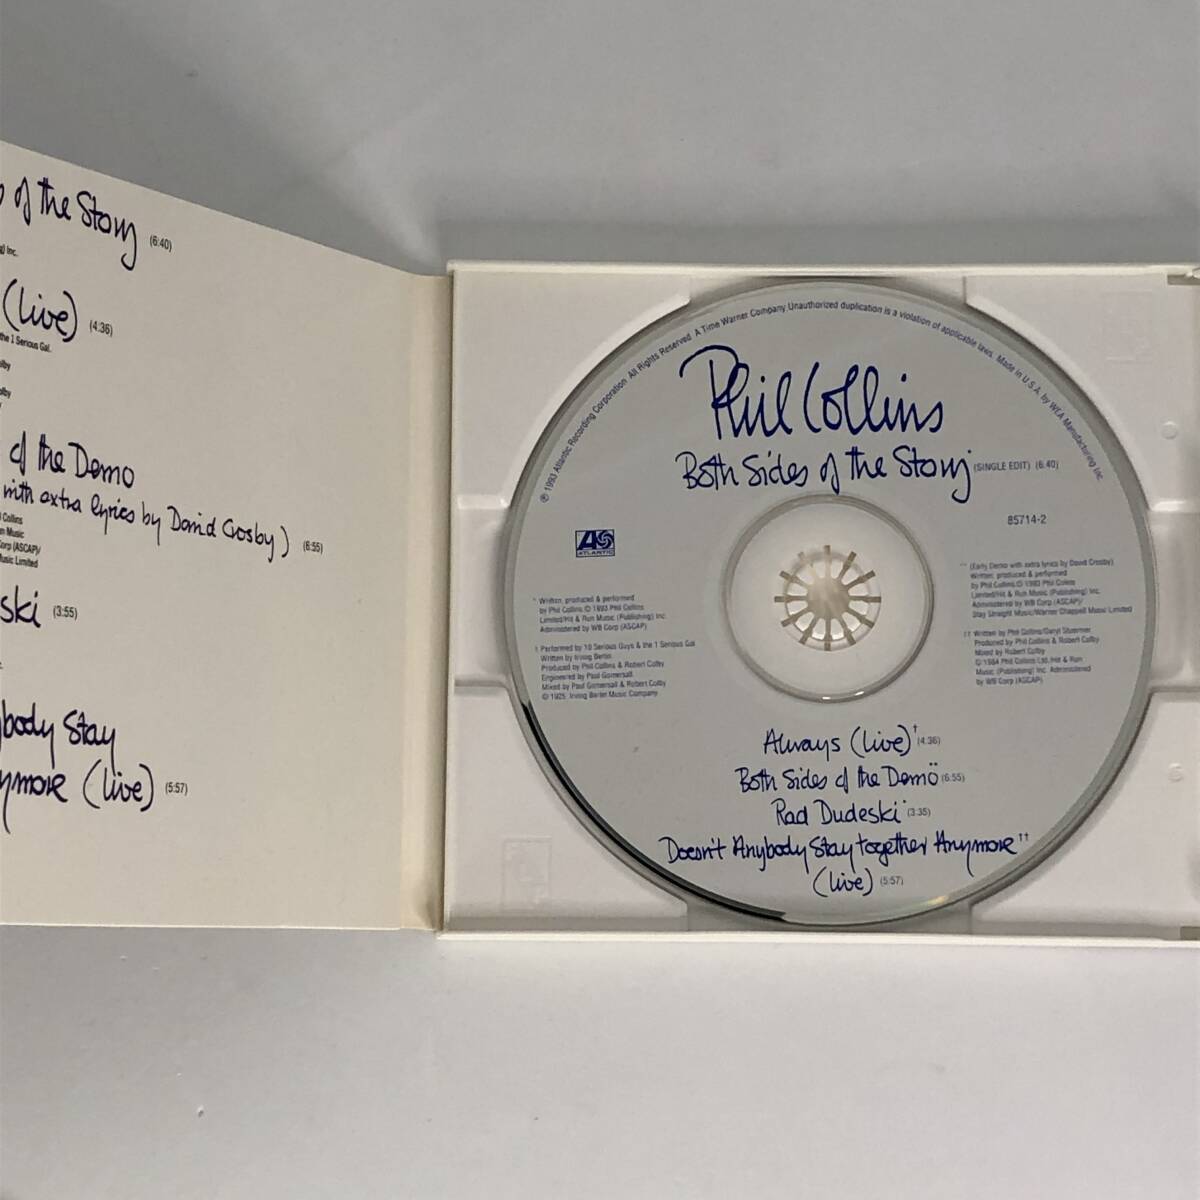 of the Story (6:40)
Inc.
(live) (4:36)
the 1 Serious Gal.
of the Demo
with extra lyrics by David Crosby) (6:55)
Collins
Music
Corp (ASCAP)/
Music Limited
ski (3:55)
body Stay
ymore (live) (5:57)
℗ 1993 Atlantic Recording Corporation All Rights Reserved A Time Warner Company Unauthorized duplication is a violation of applicable laws. Made in U.S.A. by WEA Manufacturing Inc.
Phil Collins
Both Sides of the Story (SINGLE EDIT) (6:40)
85714-2
ATLANTIC
* Written, produced & performed
by Phil Collins.© 1993 Phil Collins
Limited/Hit & Run Music (Publishing) Inc.
Administered by WB Corp (ASCAP)
† Performed by 10 Serious Guys & the 1 Serious Gal.
Written by Irving Berlin.
Produced by Phil Collins & Robert Colby
Engineered by Paul Gomersall
Mixed by Paul Gomersall & Robert Colby
© 1925, Irving Berlin Music Company.
** (Early Demo with extra lyrics by David Crosby)
Written, produced & performed
by Phil Collins.© 1993 Phil Collins
Limited/Hit & Run Music (Publishing) Inc.
Administered by WB Corp (ASCAP)/
Stay Straight Music/Warner Chappell Music Limited
†† Written by Phil Collins/Daryl Stuermer.
Produced by Phil Collins & Robert Colby
Mixed by Robert Colby
© 1984 Phil Collins Ltd./Hit & Run
Music (Publishing) Inc. Administered
by WB Corp (ASCAP)
Always (live)† (4:36)
Both Sides of the Demo** (6:55)
Rad Dudeski* (3:35)
Doesn't Anybody Stay together Anymore††
(live) (5:57)